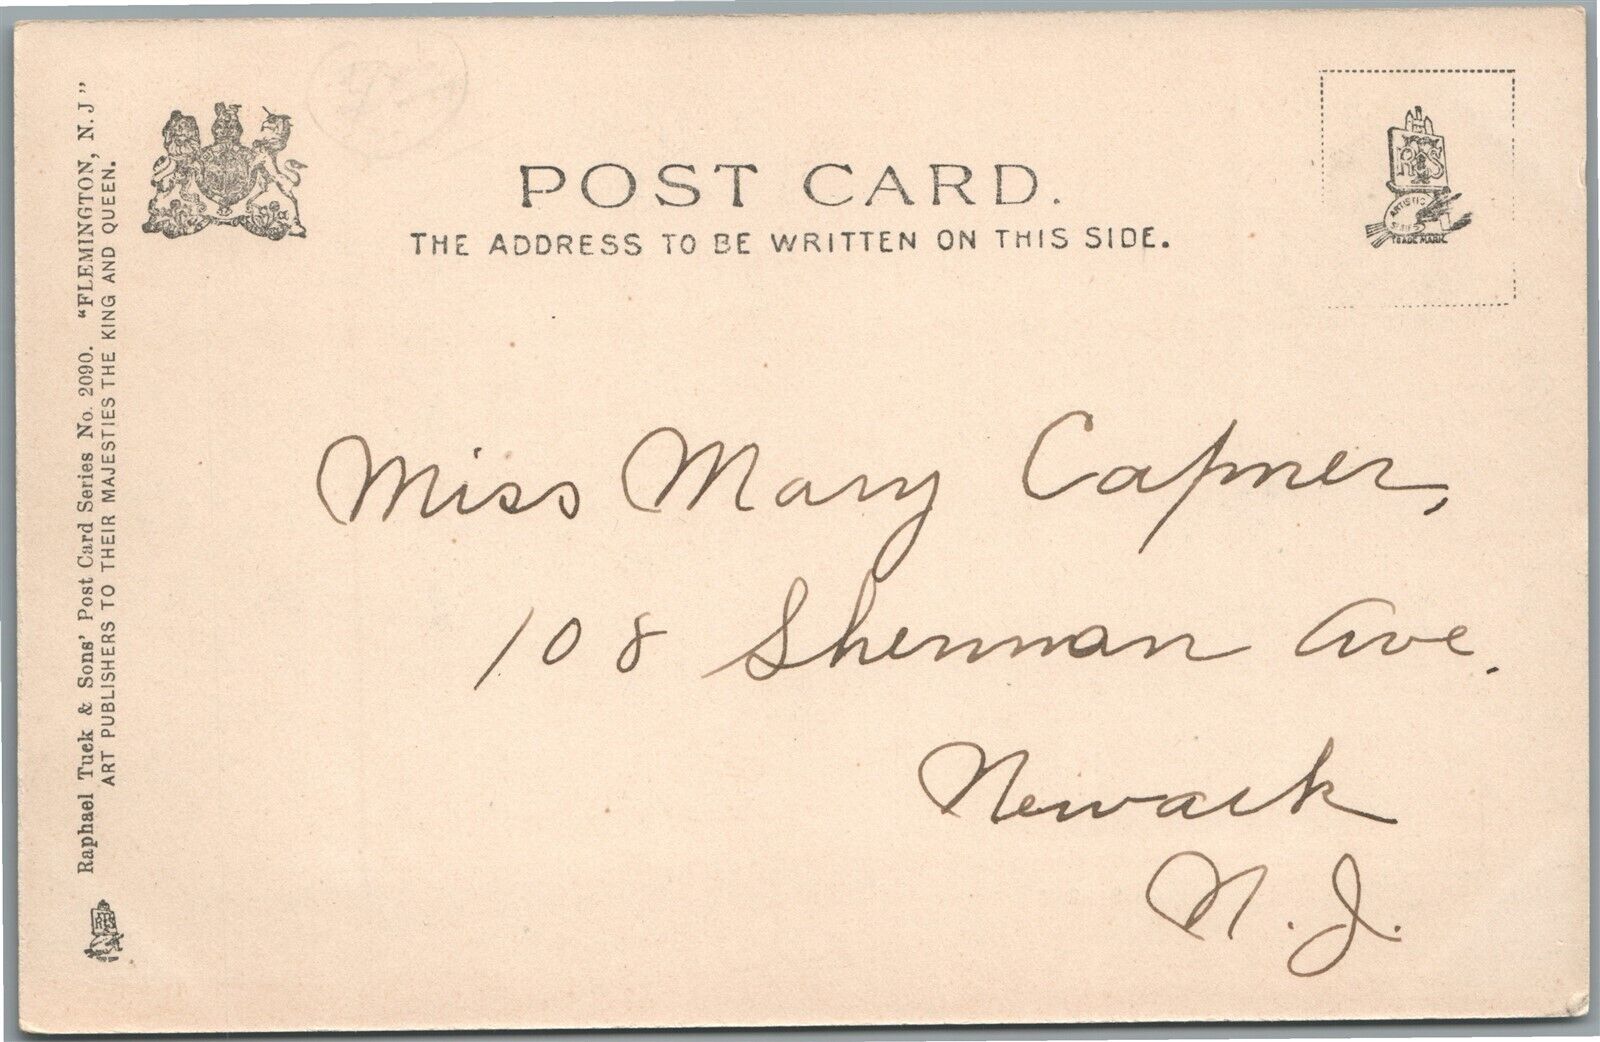 POST CARD.
THE ADDRESS TO BE WRITTEN ON THIS SIDE.
Raphael Tuck & Sons' Post Card Series No. 2090. "FLEMINGTON, N.J"
ART PUBLISHERS TO THEIR MAJESTIES THE KING AND QUEEN.
RTS
ARTISTIC
SERIES
TRADE MARK.
Miss Mary Capner,
108 Sherman Ave.
Newark
N. J.
RTS